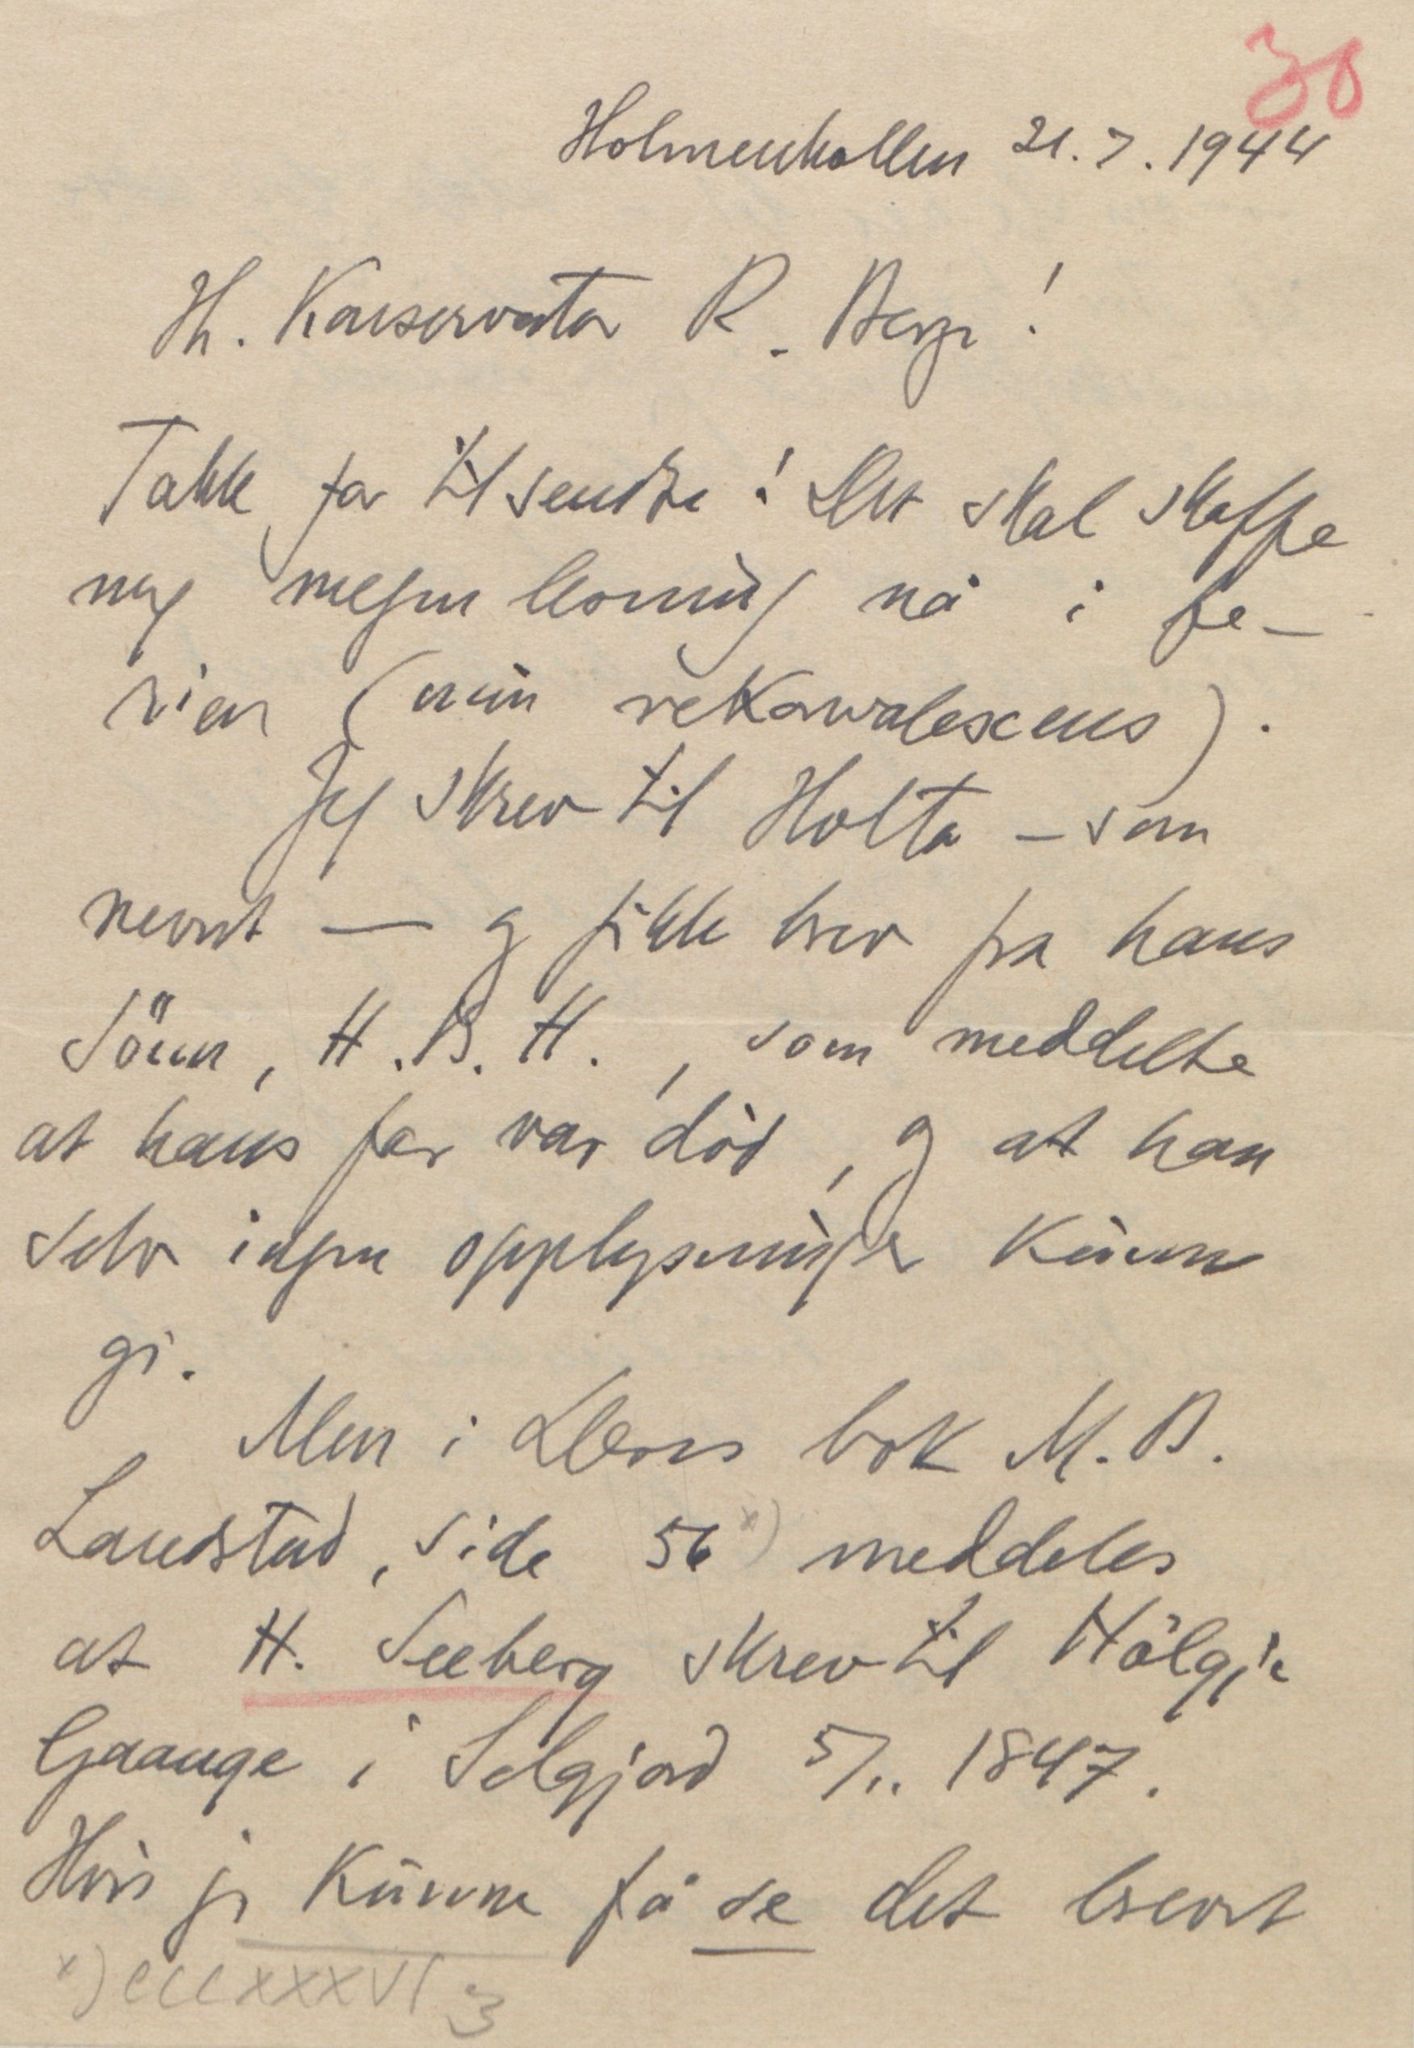 30
Holmenkollen 21.7.1944
Hr. Konservator R. Berge!
Takk for tilsendte! Det skal skaffe
mig megen lesning nå i fe-
rien (min rekonvalescens).
Jeg skrev til Holta – som
nevnt – og fikk brev fra hans
sönn, H.B.H., som meddelte
at hans far var död, og at han
selv ingen opplysninger kunne
gi.
Men i Deres bok M.B.
Landstad, side 56 x) meddeles
at H. Seeberg skrev til Hölgje
Gaange i Selgjord 5/.. 1847.
Hvis jeg kunne få se det brevet
x) CCCXXXVI 3